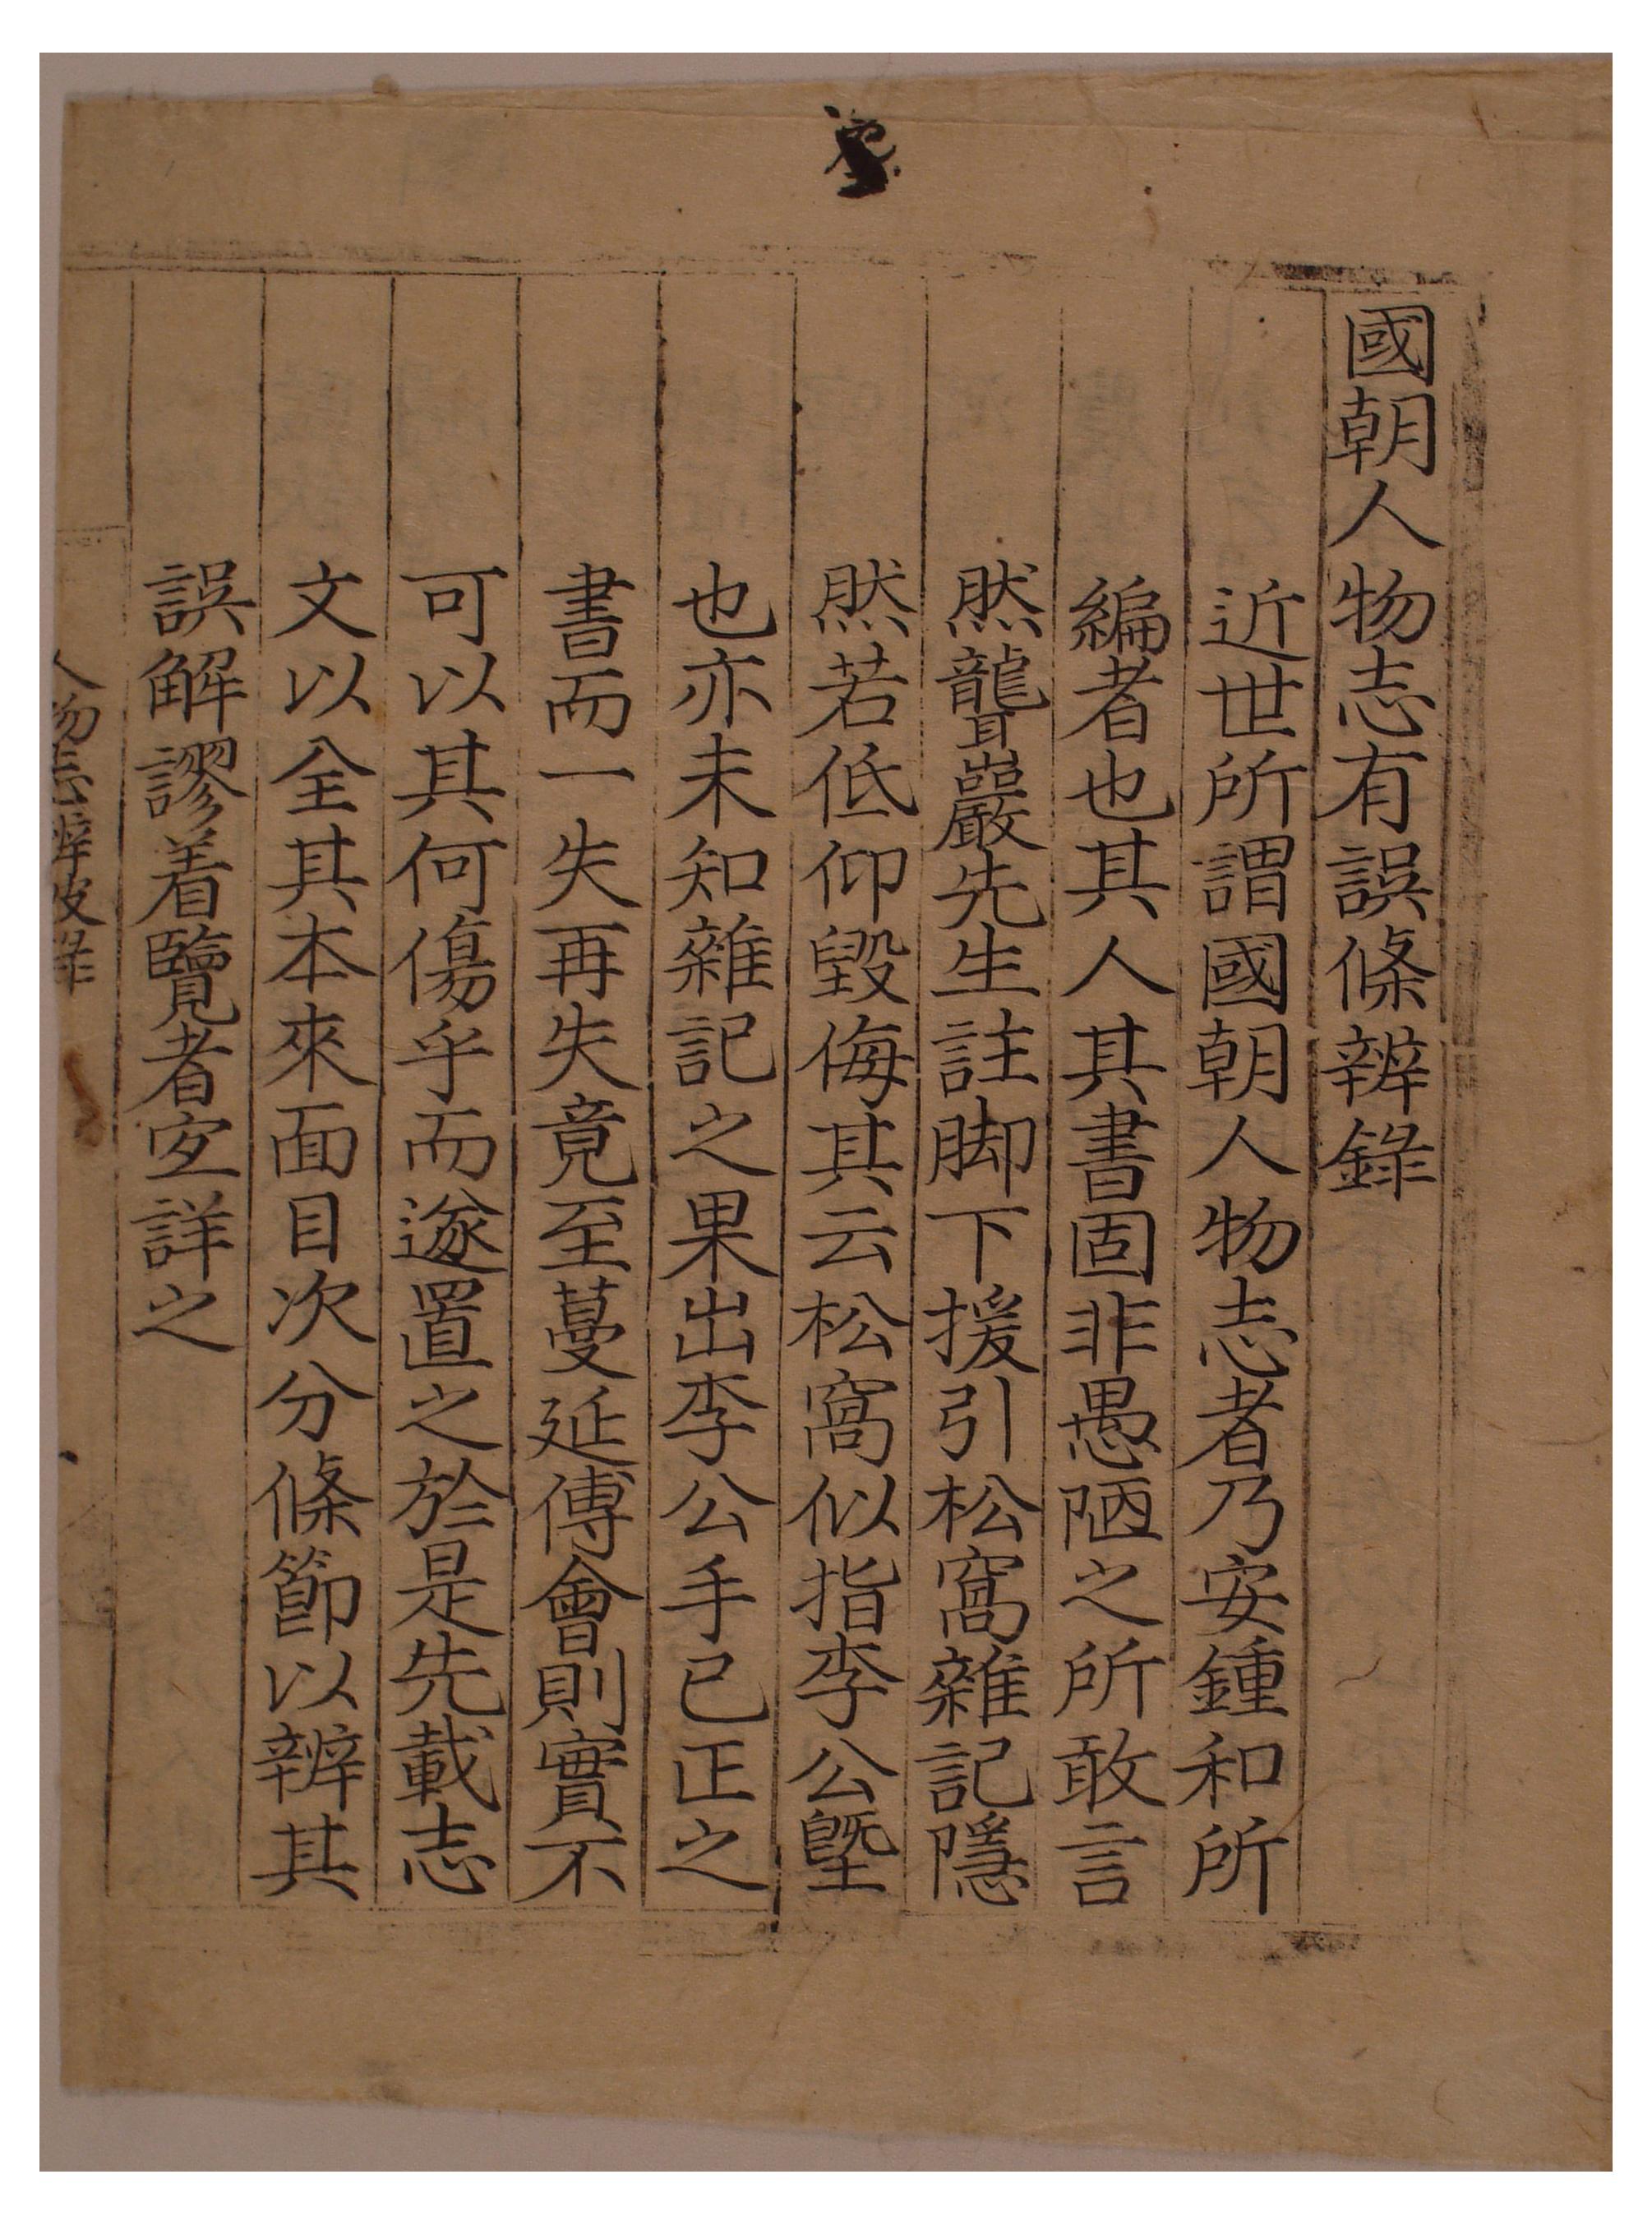 國朝人物志有誤條辨錄
近世所謂國朝人物志者乃安鍾和所
編者也其人其書固非愚陋之所敢言
然聾巖先生註脚下援引松窩雜記隱
然若低仰毀侮其云松窩似指李公塈
也亦未知雜記之果出李公手已正之
書而一失再失竟至蔓延傅會則實不
可以其何傷乎而遂置之於是先載志
文以全其本來面目次分條節以辨其
誤解謬着覽者宜詳之
人物志辨